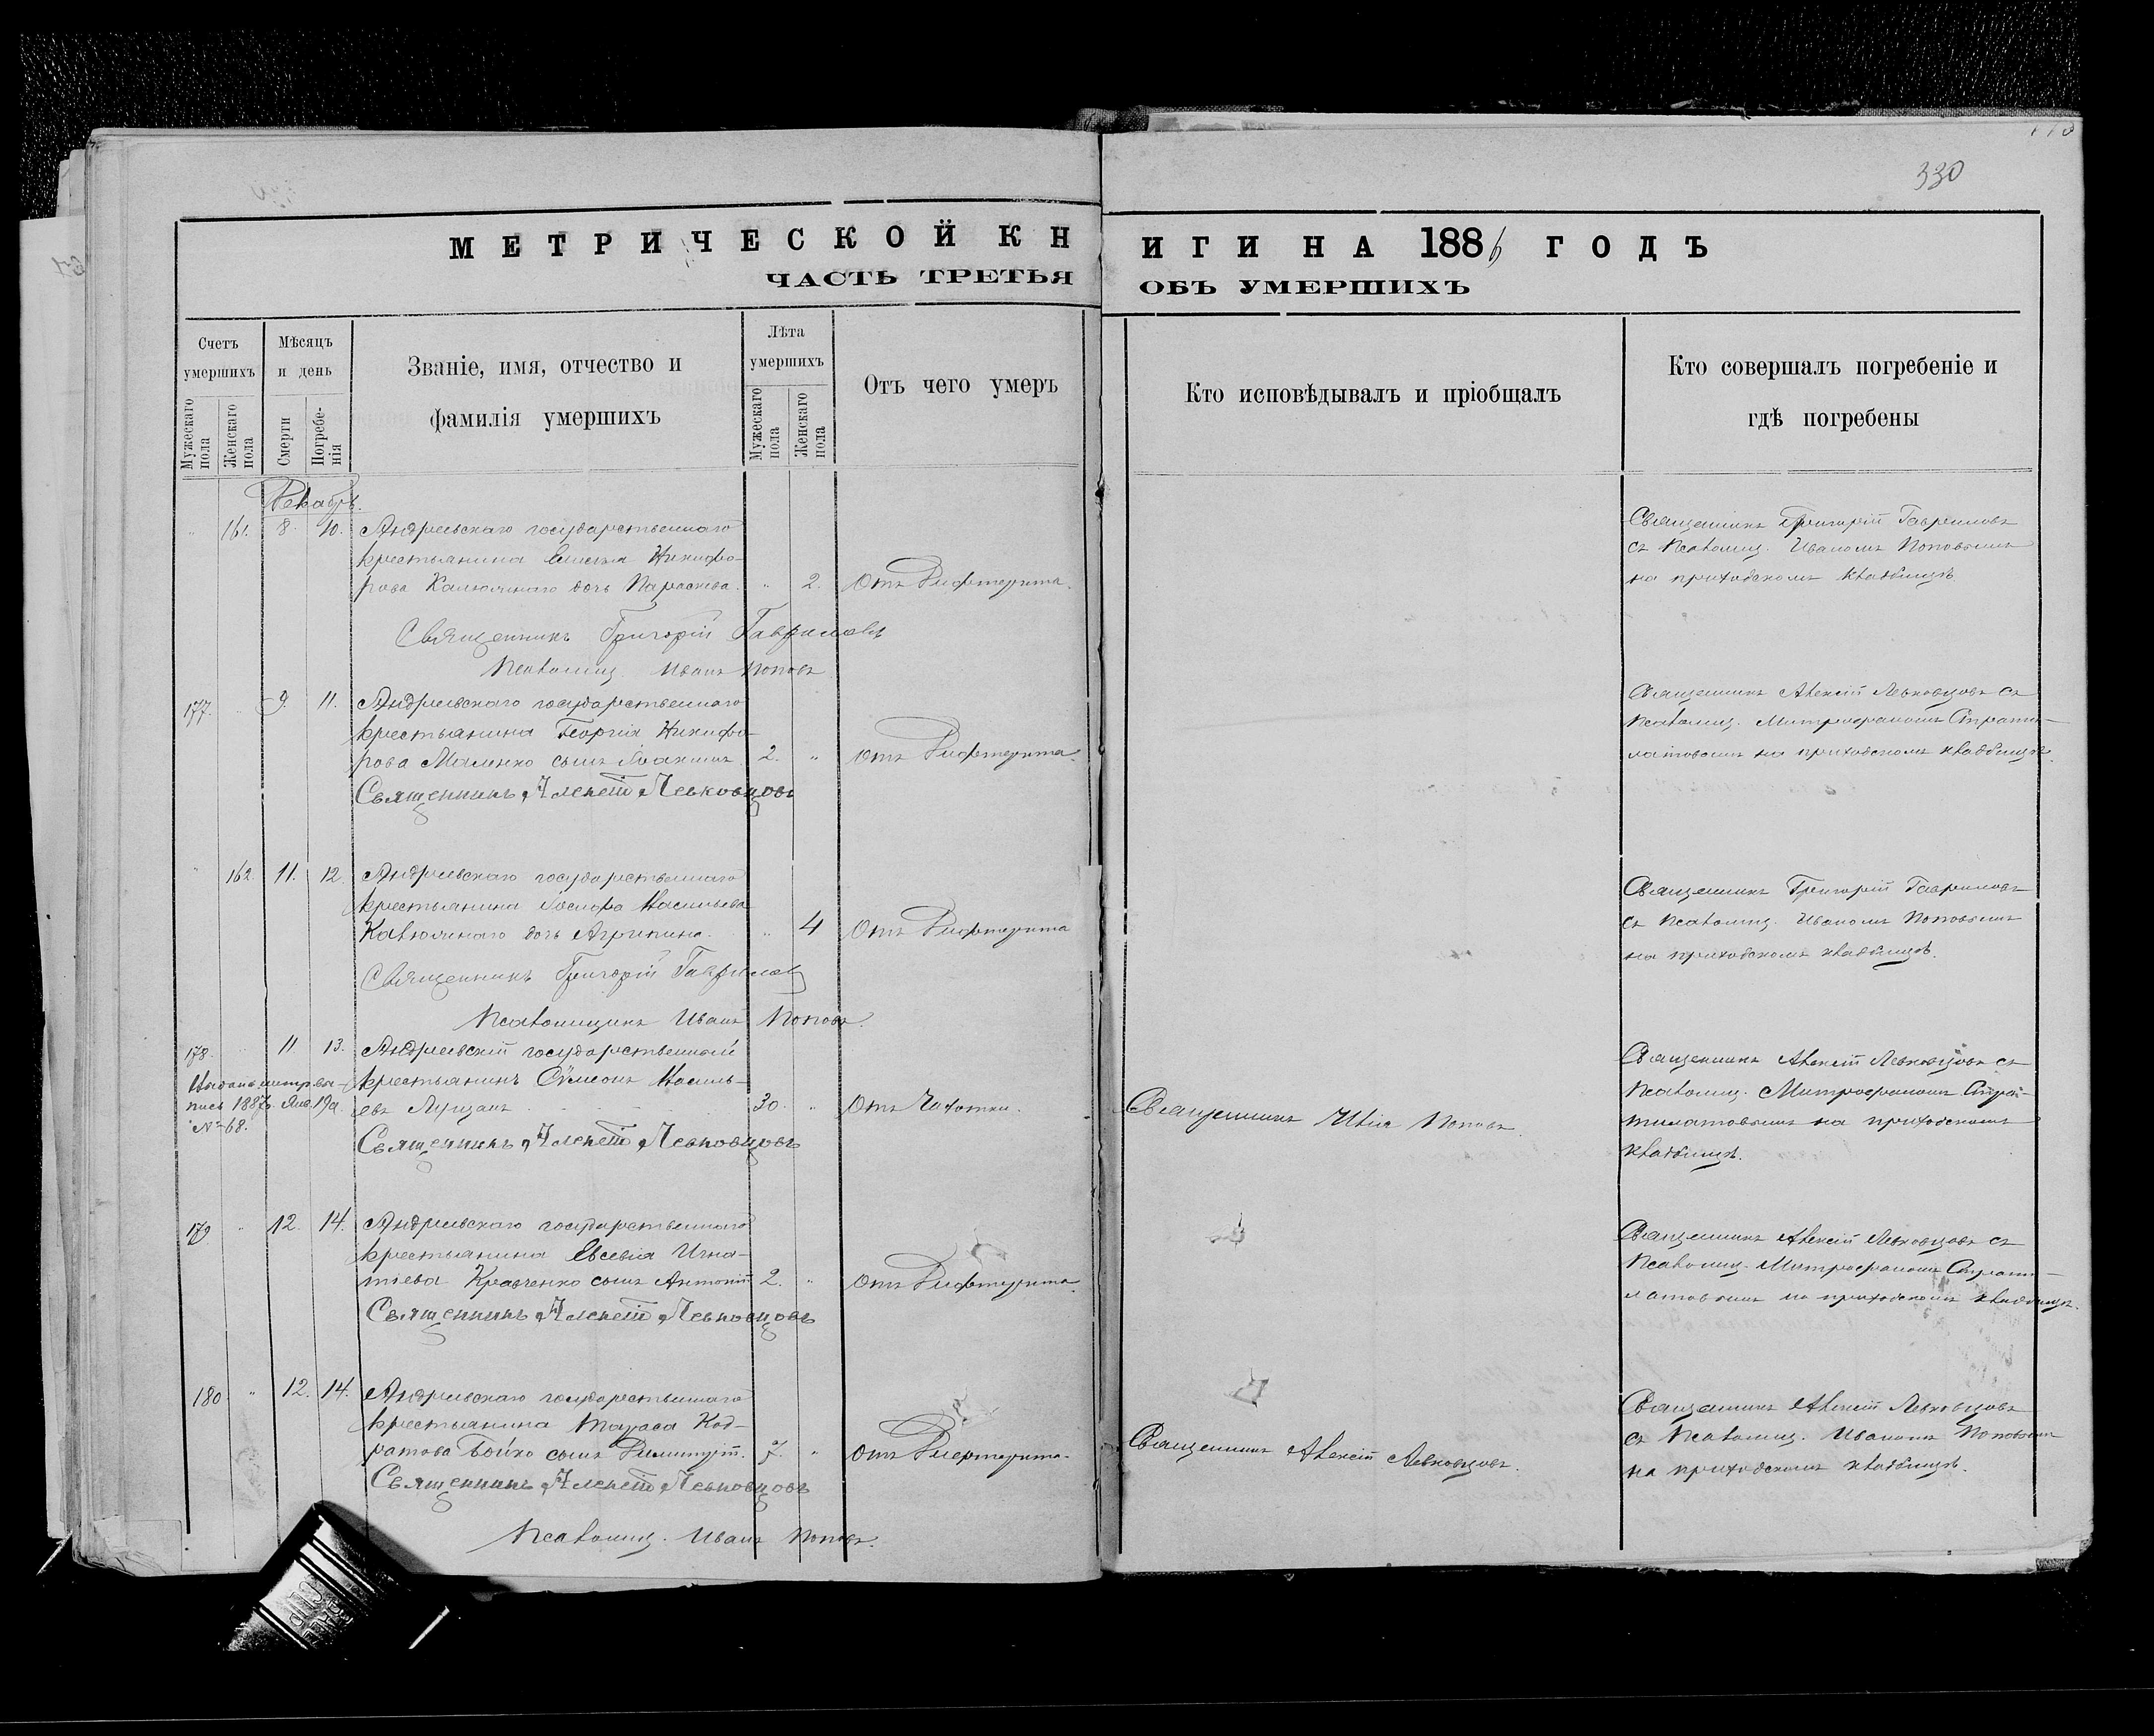 330
МЕТРИЧЕСКОЙ КНИГИ НА 1886 ГОДЪ
ЧАСТЬ ТРЕТЬЯ ОБЪ УМЕРШИХЪ
Счетъ умершихъ
Мужескаго пола
Женскаго пола
Мѣсяцъ и день
Смерти
Погребенія
Званіе, имя, отчество и
фамилія умершихъ
Лѣта умершихъ
Мужескаго пола
Женскаго пола
Отъ чего умеръ
Кто исповѣдывалъ и пріобщалъ
Кто совершалъ погребеніе и
гдѣ погребены
Декабрь.
" 161. 8. 10. Андреевскаго государственнаго
крестьянина Никифо-
рова дочь Параскева. " 2. Отъ Дифтерита.
Священникъ Григорій Гавриловъ
съ Псаломщ. Иваномъ Поповымъ
на приходскомъ кладбищѣ
Священникъ Григорій Гавриловъ
Псаломщ. Иванъ Поповъ
177. " 9. 11. Андреевскаго государственнаго
крестьянина Георгія Никифо-
рова Маленко сынъ Іоакимъ. 2. " Отъ Дифтерита.
Священникъ Алексій Левковцовъ съ
Псаломщ. Митрофаномъ Страти-
латовымъ на приходскомъ кладбищѣ.
Священникъ Алексій Левковцовъ
" 162. 11. 12. Андреевскаго государственнаго
крестьянина Іосифа Васильева
дочь Агрипина. " 4 Отъ Дифтерита
Священникъ Григорій Гавриловъ
съ Псаломщ. Иваномъ Поповымъ
на приходскомъ кладбищѣ.
Священникъ Григорій Гавриловъ
Псаломщикъ Иванъ Поповъ.
178. " 11. 13. Андреевскій государственный
крестьянинъ Сѵмеонъ Василь-
евъ 30. " Отъ Чахотки.
Выдана метр. вы-
пись 1887 г. Янв. 19 д.
№ 68.
Священникъ Илія Поповъ.
Священникъ Алексій Левковцовъ съ
Псаломщ. Митрофаномъ Стра-
тилатовымъ на приходскомъ
кладбищѣ.
Священникъ Алексій Левковцовъ
179 " 12. 14. Андреевскаго государственнаго
крестьянина Евсевія Игна-
тіева Кравченко сынъ Антоній 2. " Отъ Дифтерита.
Священникъ Алексій Левковцовъ съ
Псаломщ. Митрофаномъ Страти-
латовымъ на приходскомъ кладбищѣ.
Священникъ Алексій Левковцовъ
180. " 12. 14. Андреевскаго государственнаго
крестьянина Тараса Код-
ратова Бойко сынъ Димитрій. 7. " Отъ Дифтерита.
Священникъ Алексій Левковцовъ.
Священникъ Алексій Левковцовъ
съ Псаломщ. Иваномъ Поповымъ
на приходскомъ кладбищѣ.
Священникъ Алексій Левковцовъ
Псаломщ. Иванъ Поповъ.